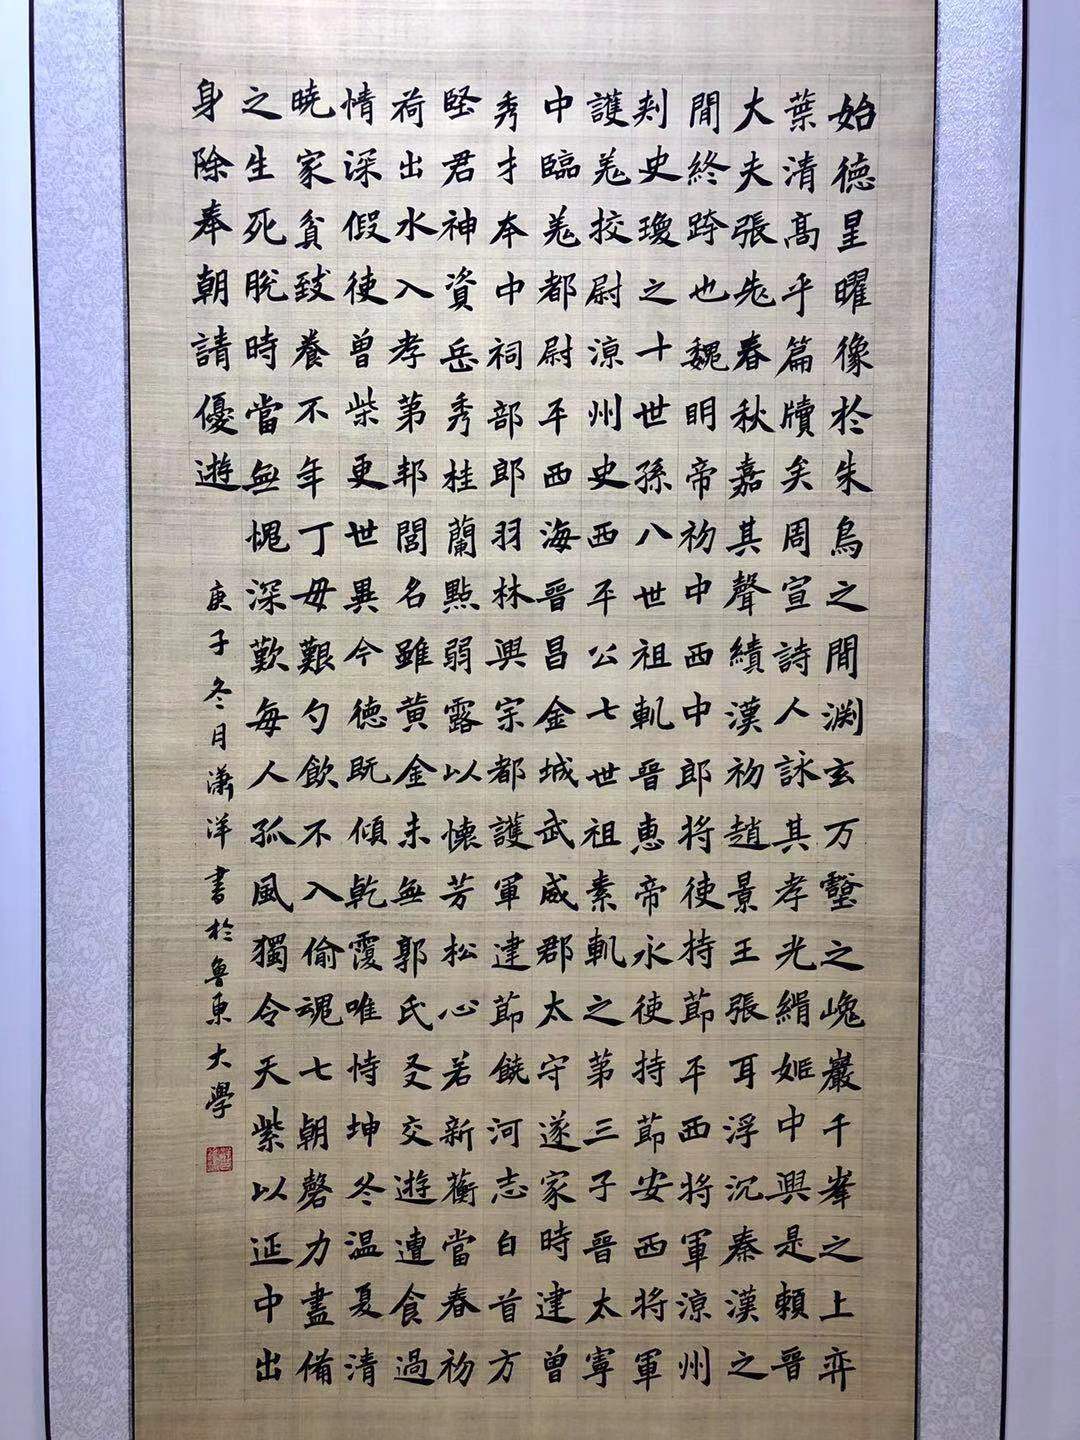 始德星曜像於朱鳥之間渊玄万壑之巉巖千峯之上弈
葉清高乎篇牘矣周宣詩人詠其孝光緝姬中興是賴晉
大夫張老春秋嘉其聲績漢初趙景王張耳浮沉秦漢之
間終跨也魏明帝初中西中郎将使持節平西将軍涼州
刺史瓊之十世孫八世祖軌晉惠帝永使持節安西将軍
護羌挍尉涼州史西平公七世祖素軌之第三子晉太寧
中臨羌都尉平西海晉昌金城武威郡太守遂家時建曾
秀才本中祠部郎羽林興宗都護軍建節饒河志白首方
堅君神資岳秀桂蘭點弱露以懷芳松心若新蘅當春初
荷出水入孝第邦閭名雖黄金未無郭氏友交遊連食過
情深假使曾柴更世異今德既傾乾覆唯恃坤冬温夏清
曉家貧致養不年丁毋艱勺飲不入偷魂七朝磬力盡備
之生死脱時當無愧深歎每人孤風獨令天紫以延中出
身除奉朝請優遊
庚子冬月潇洋書於魯東大學